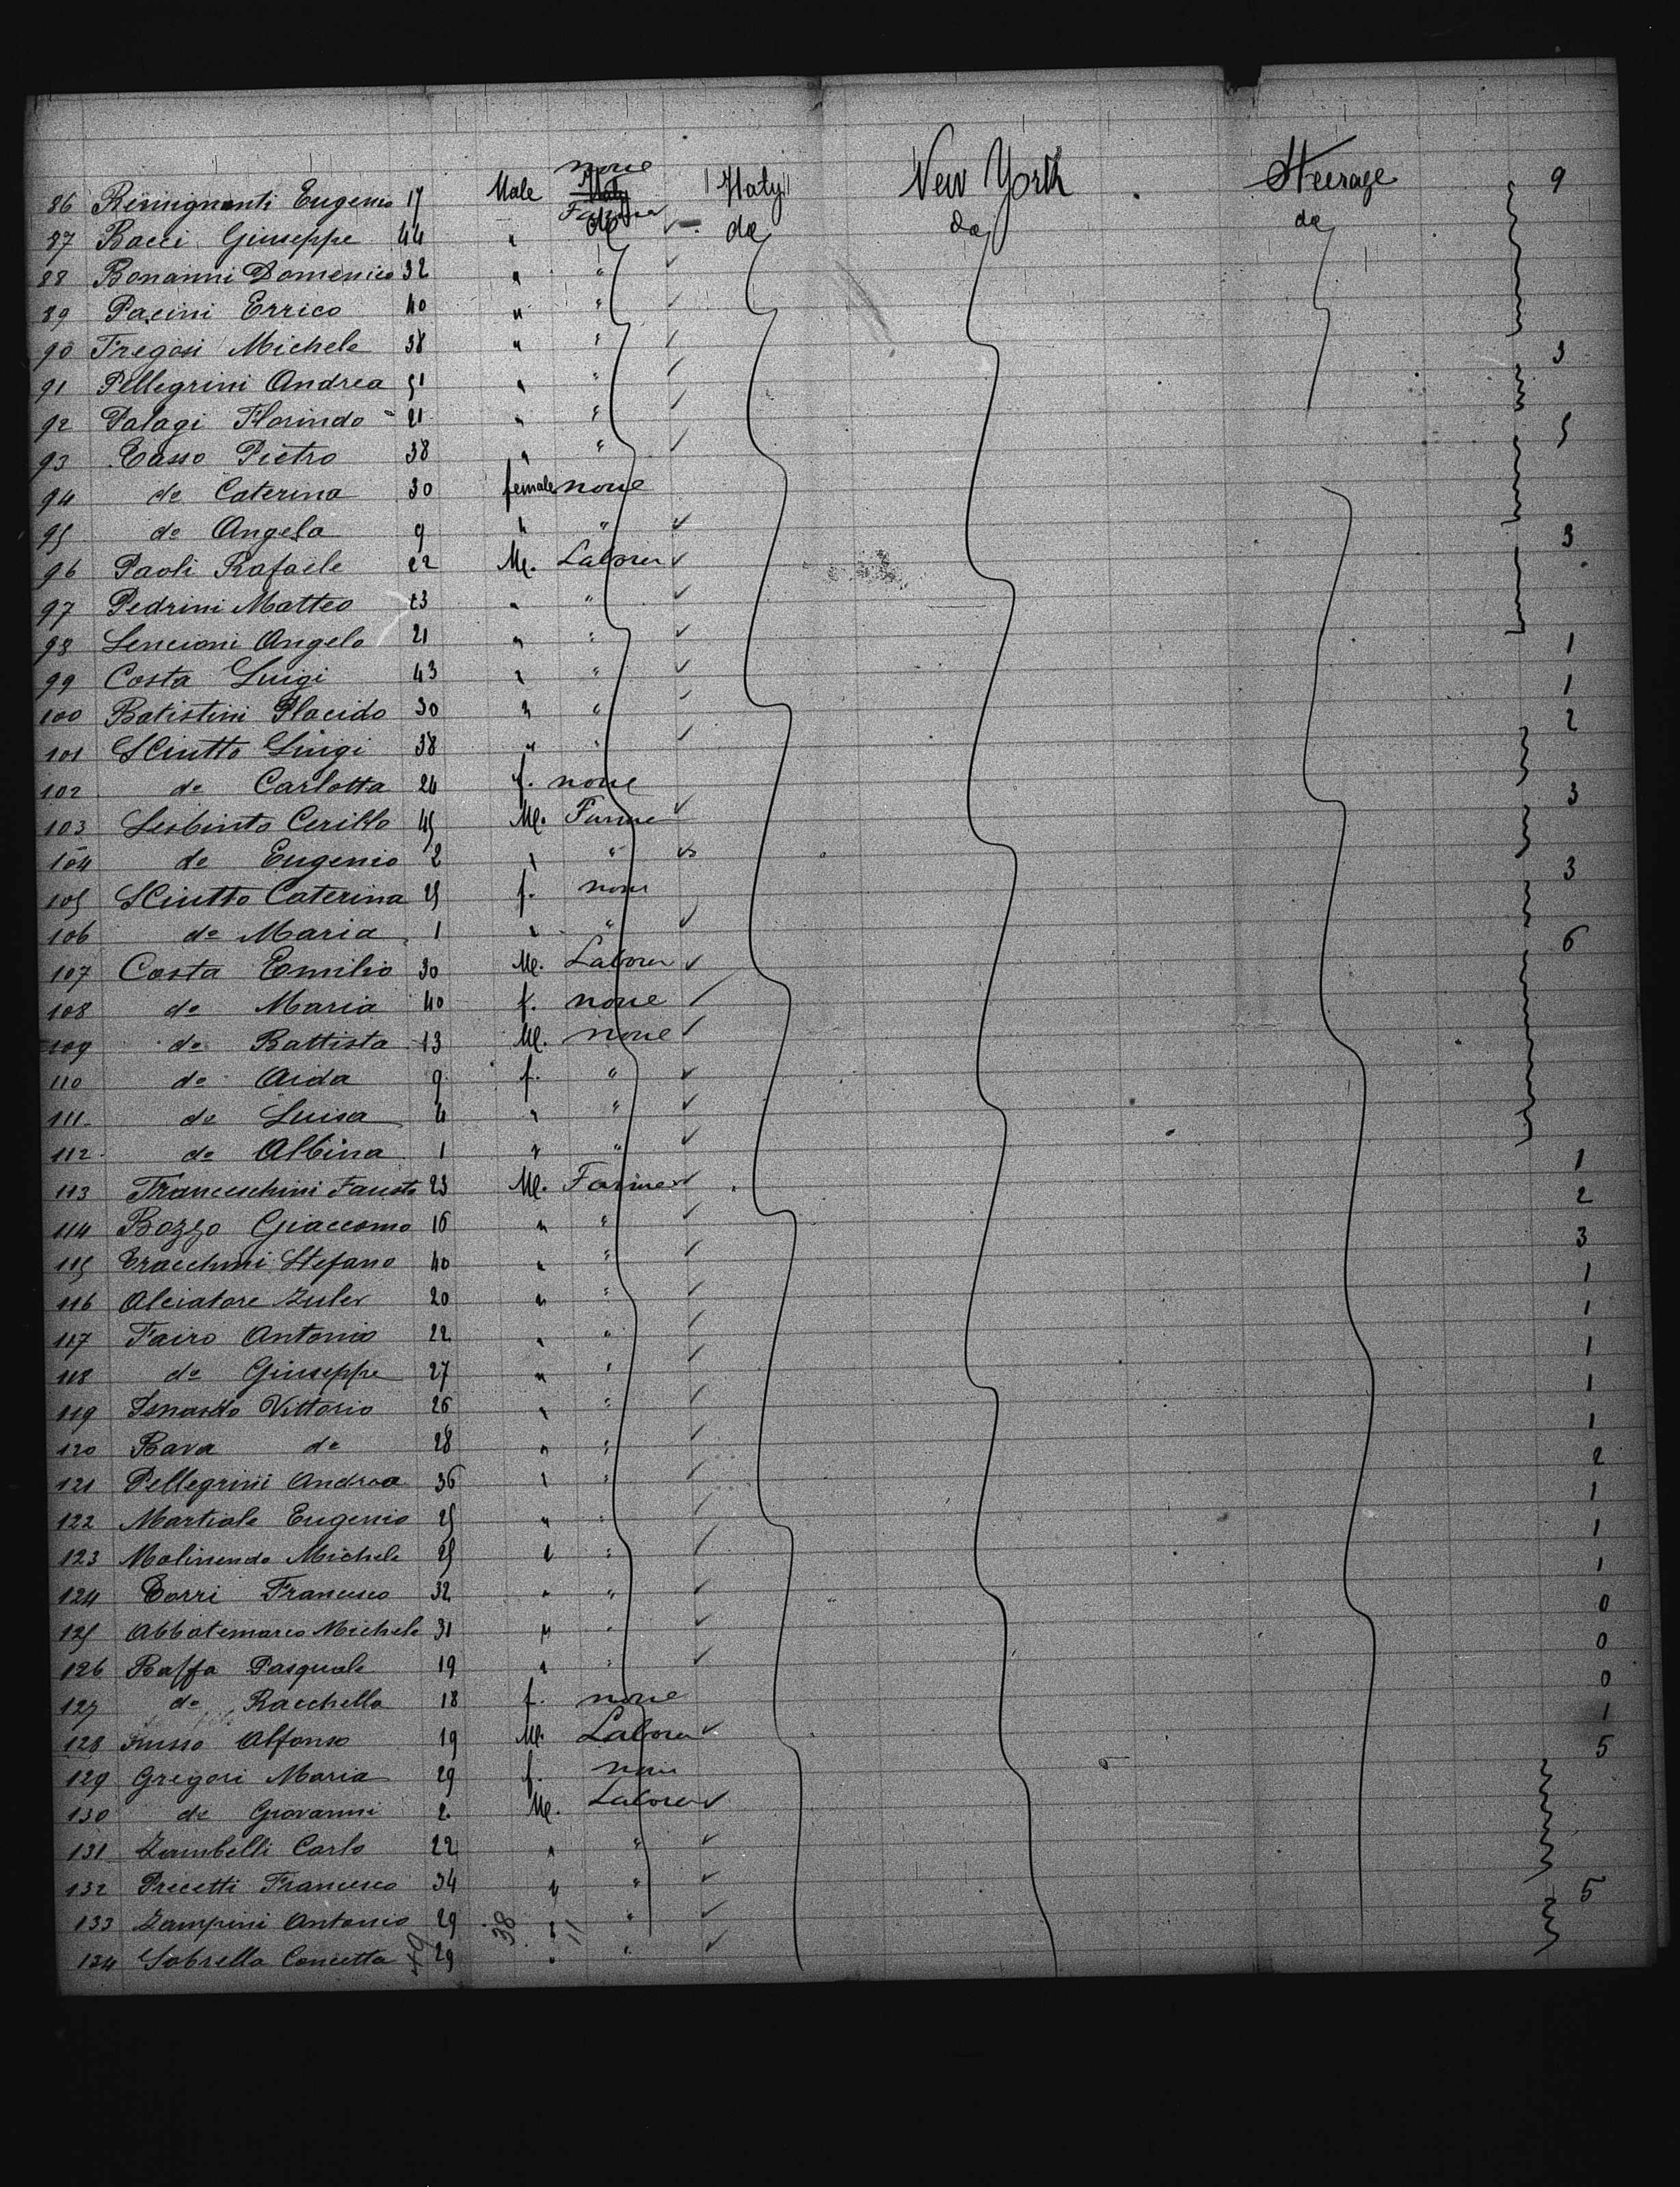 86 Remignanti Eugenio 17 Male none Italy New York Steerage 9
87 Bacci Giuseppe 44 " Farmer do do do do
88 Bonanni Domenico 32 " "
89 Pacini Errico 40 " "
90 Fregosi Michele 38 " " 3
91 Pellegrini Andrea 51 " "
92 Palagi Florindo 21 " " 5
93 Casso Pietro 38 " "
94 do Caterina 30 female none
95 do Angela 9 " " 3
96 Paoli Rafaele 22 M. Laborer
97 Pedrini Matteo 23 " "
98 Lencioni Angelo 21 " " 1
99 Costa Luigi 43 " " 1
100 Batistini Placido 30 " " 2
101 Sciutto Luigi 38 " "
102 do Carlotta 24 f. none 3
103 Cerillo 45 M. Farmer
104 do Eugenio 2 " " 3
105 Sciutto Caterina 25 f. none
106 do Maria 1 " " 6
107 Costa Emilio 30 M. Laborer
108 do Maria 40 f. none
109 do Battista 13 M. none
110 do Aida 9 f. "
111 do Luisa 4 " "
112 do Albina 1 " " 1
113 Franceschini Fausto 23 M. Farmer 2
114 Bozzo Giaccomo 16 " " 3
115 Stefano 40 " " 1
116 Alciatore 20 " " 1
117 Fairo Antonio 22 " " 1
118 do Giuseppe 27 " " 1
119 Isnardo Vittorio 26 " " 1
120 Bava do 28 " " 2
121 Pellegrini Andrea 36 " " 1
122 Martiale Eugenio 25 " " 1
123 Michele 25 " " 1
124 Corri Francesco 32 " " 0
125 Abbatemarco Michele 31 " " 0
126 Raffa Pasquale 19 " " 0
127 do Racchella 18 f. none 1
128 Russo Alfonso 19 M. Laborer 5
129 Gregori Maria 29 f. none
130 do Giovanni 2 M. Laborer
131 Zambelli Carlo 22 " "
132 Precetti Francesco 34 " " 5
133 Zampini Antonio 29 " "
134 Concetta 29 " "
49 38 11